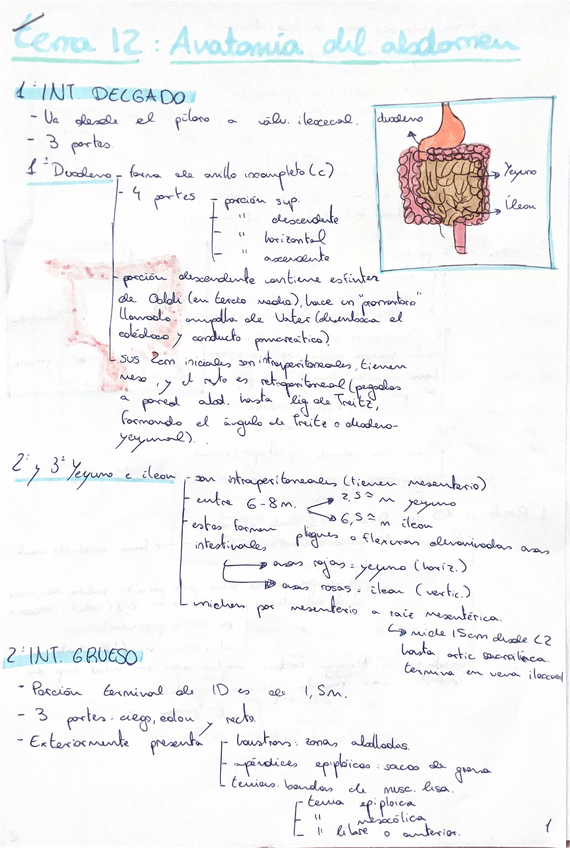 Tema 12: Anatomía del abdomen
1º INT DELGADO
- Va desde el píloro a válv. ileocecal.
- 3 partes.
duodeno
Yeyuno
Íleon
1º Duodeno - forma de anillo incompleto (c)
- 4 partes - porción sup.
" descendente
" horizontal
" ascendente
- porción descendente contiene esfínter
de Oddi (en tercio medio), hace un "promontorio"
llamado ampolla de Vater (desemboca el
colédoco y conducto pancreático).
- sus 2cm iniciales son intraperitoneales, tienen
meso, y el resto es retroperitoneal (pegados
a pared abd. hasta lig de Treitz,
formando el ángulo de Treitz o duodeno-
yeyunal).
2º y 3º Yeyuno e íleon - son intraperitoneales (tienen mesenterio)
- entre 6-8m. 2,5 m yeyuno
6,5 m íleon
- estos forman pliegues o flexuras denominadas asas
intestinales
asas rojas = yeyuno (horiz.)
asas rosas = íleon (vertic.)
- unidos por mesenterio a raíz mesentérica.
mide 15cm desde L2
hasta artic sacroilíaca
termina en vena ileocecal
2º INT. GRUESO
- Porción terminal de ID es de 1,5m.
- 3 partes: ciego, colon y recto.
- Exteriormente presenta - haustras: zonas abolladas.
- apéndices epiplóicos: sacos de grasa
- tenias: bandas de musc. lisa.
- tenia epiploica
" mesocólica
" libre o anterior.
1